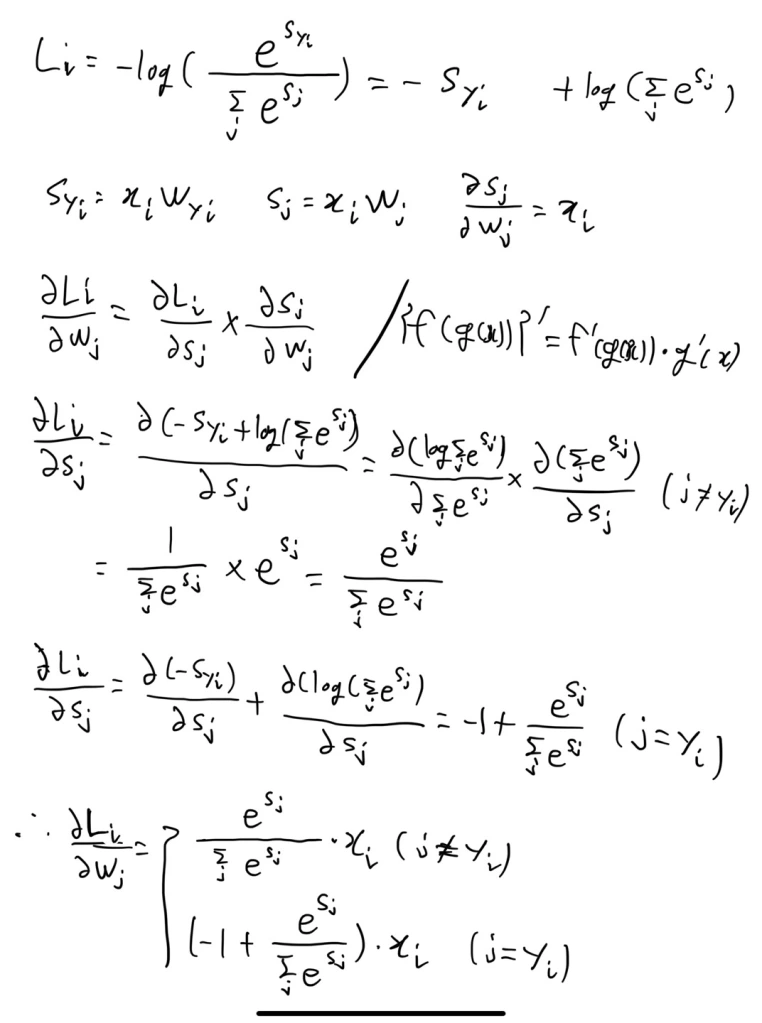 Li = -log( e^{S_{Yi}} / Σ_j e^{Sj} ) = - S_{Yi} + log(Σ_j e^{Sj})
S_{Yi} = x_i W_{Yi} Sj = x_i Wj ∂Sj/∂Wj = x_i
∂Li/∂Wj = ∂Li/∂Sj × ∂Sj/∂Wj / {f(g(x))}' = f'(g(x))・g'(x)
∂Li/∂Sj = ∂(-S_{Yi} + log(Σ_j e^{Sj})/∂Sj = ∂(log Σ_j e^{Sj})/∂Σ_j e^{Sj} × ∂(Σ_j e^{Sj})/∂Sj (j≠Yi)
= 1/Σ_j e^{Sj} × e^{Sj} = e^{Sj}/Σ_j e^{Sj}
∂Li/∂Sj = ∂(-S_{Yi})/∂Sj + ∂(log(Σ_j e^{Sj})/∂Sj = -1 + e^{Sj}/Σ_j e^{Sj} (j=Yi)
∴ ∂Li/∂Wj = { e^{Sj}/Σ_j e^{Sj} ・x_i (j≠Yi)
(-1 + e^{Sj}/Σ_j e^{Sj})・x_i (j=Yi)